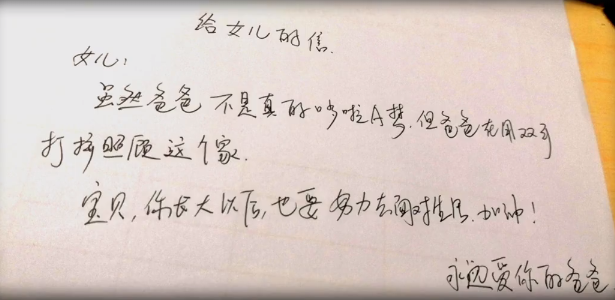 给女儿的信.
女儿:
虽然爸爸不是真的哆啦A梦.但爸爸在用双手
打拼照顾这个家.
宝贝,你长大以后,也要努力去面对生活.加油!
永远爱你的爸爸